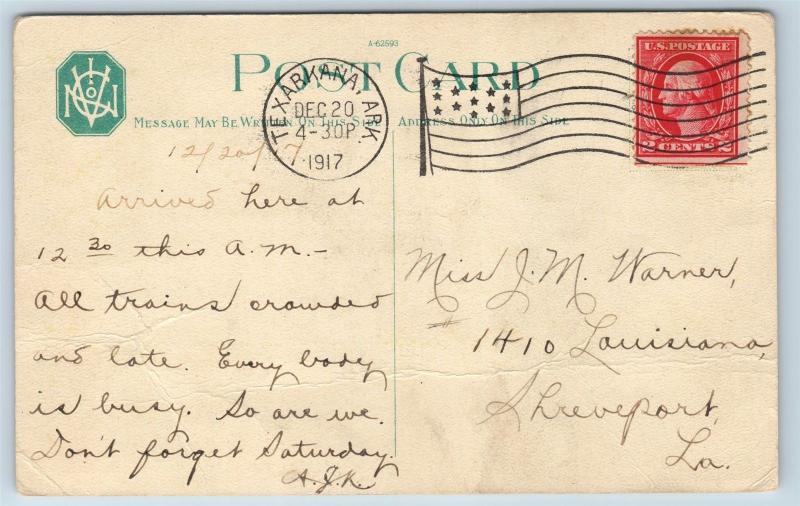 A-62593
POST CARD
U.S. POSTAGE
TEXARKANA, ARK.
DEC 20
4-30P
1917
2 CENTS 2
MESSAGE MAY BE WRITTEN ON THIS SIDE
ADDRESS ONLY ON THIS SIDE
12/20/17
Arrived here at
12 30 this A.M. -
All trains crowded
and late. Every body
is busy. So are we.
Don't forget Saturday.
A.J.K.
Miss J. M. Warner,
# 1410 Louisiana,
Shreveport,
La.